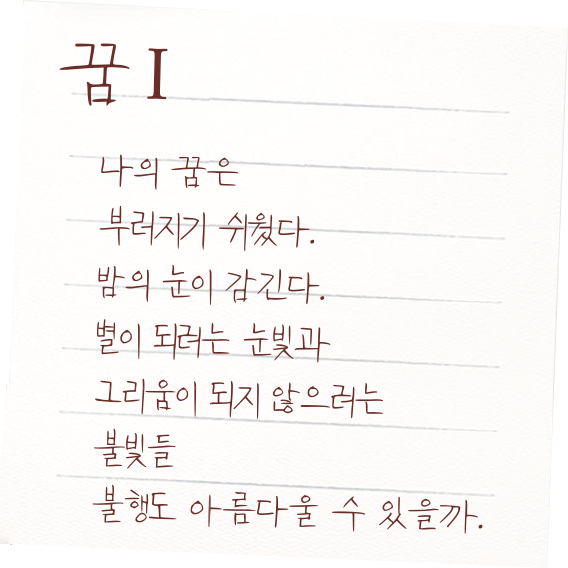 꿈 I
나의 꿈은
부러지기 쉬웠다.
밤의 눈이 감긴다.
별이 되려는 눈빛과
그리움이 되지 않으려는
불빛들
불행도 아름다울 수 있을까.